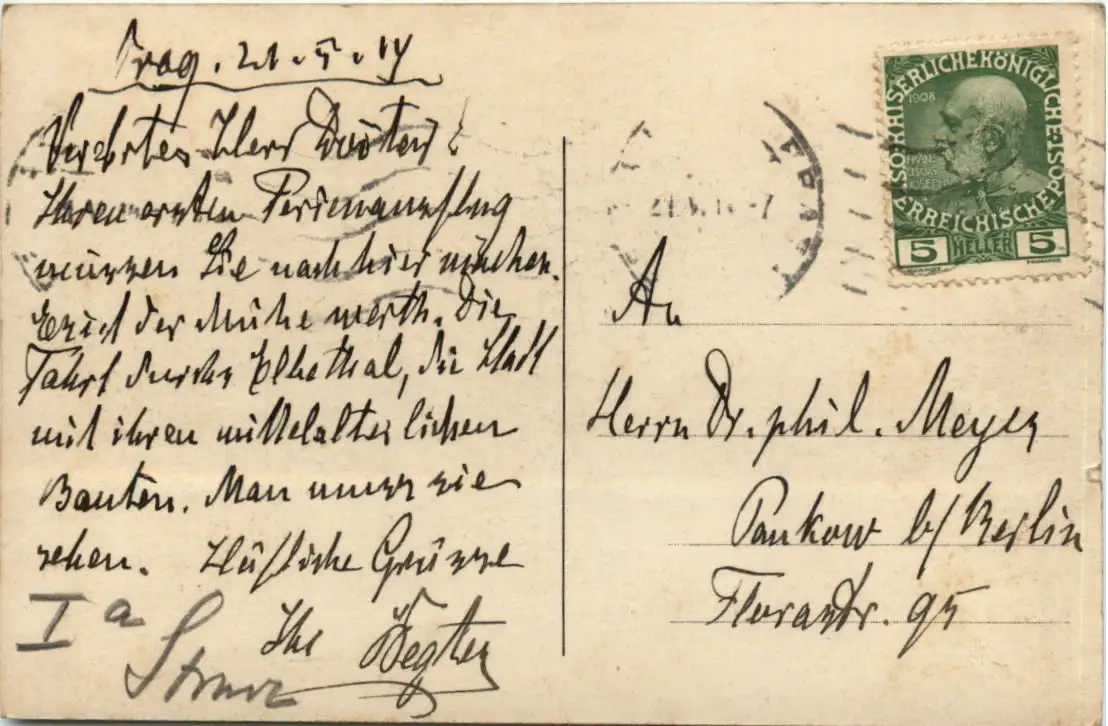 Prag. 21. 5. 14
Verehrter Herr Doktor!
Ihren ersten Ferienausflug
müssen Sie nach hier machen.
Es ist der Mühe werth. Die
Fahrt durchs Elbethal, die Stadt
mit ihren mittelalterlichen
Bauten. Man muss sie
sehen. Höfliche Grüsse
Ihr
I a
KAISERLICHEKÖNIGLICHE
ÖSTERREICHISCHE POST
1908
5 HELLER 5
An
Herrn Dr. phil. Meyer
Pankow b/Berlin
Florastr. 95